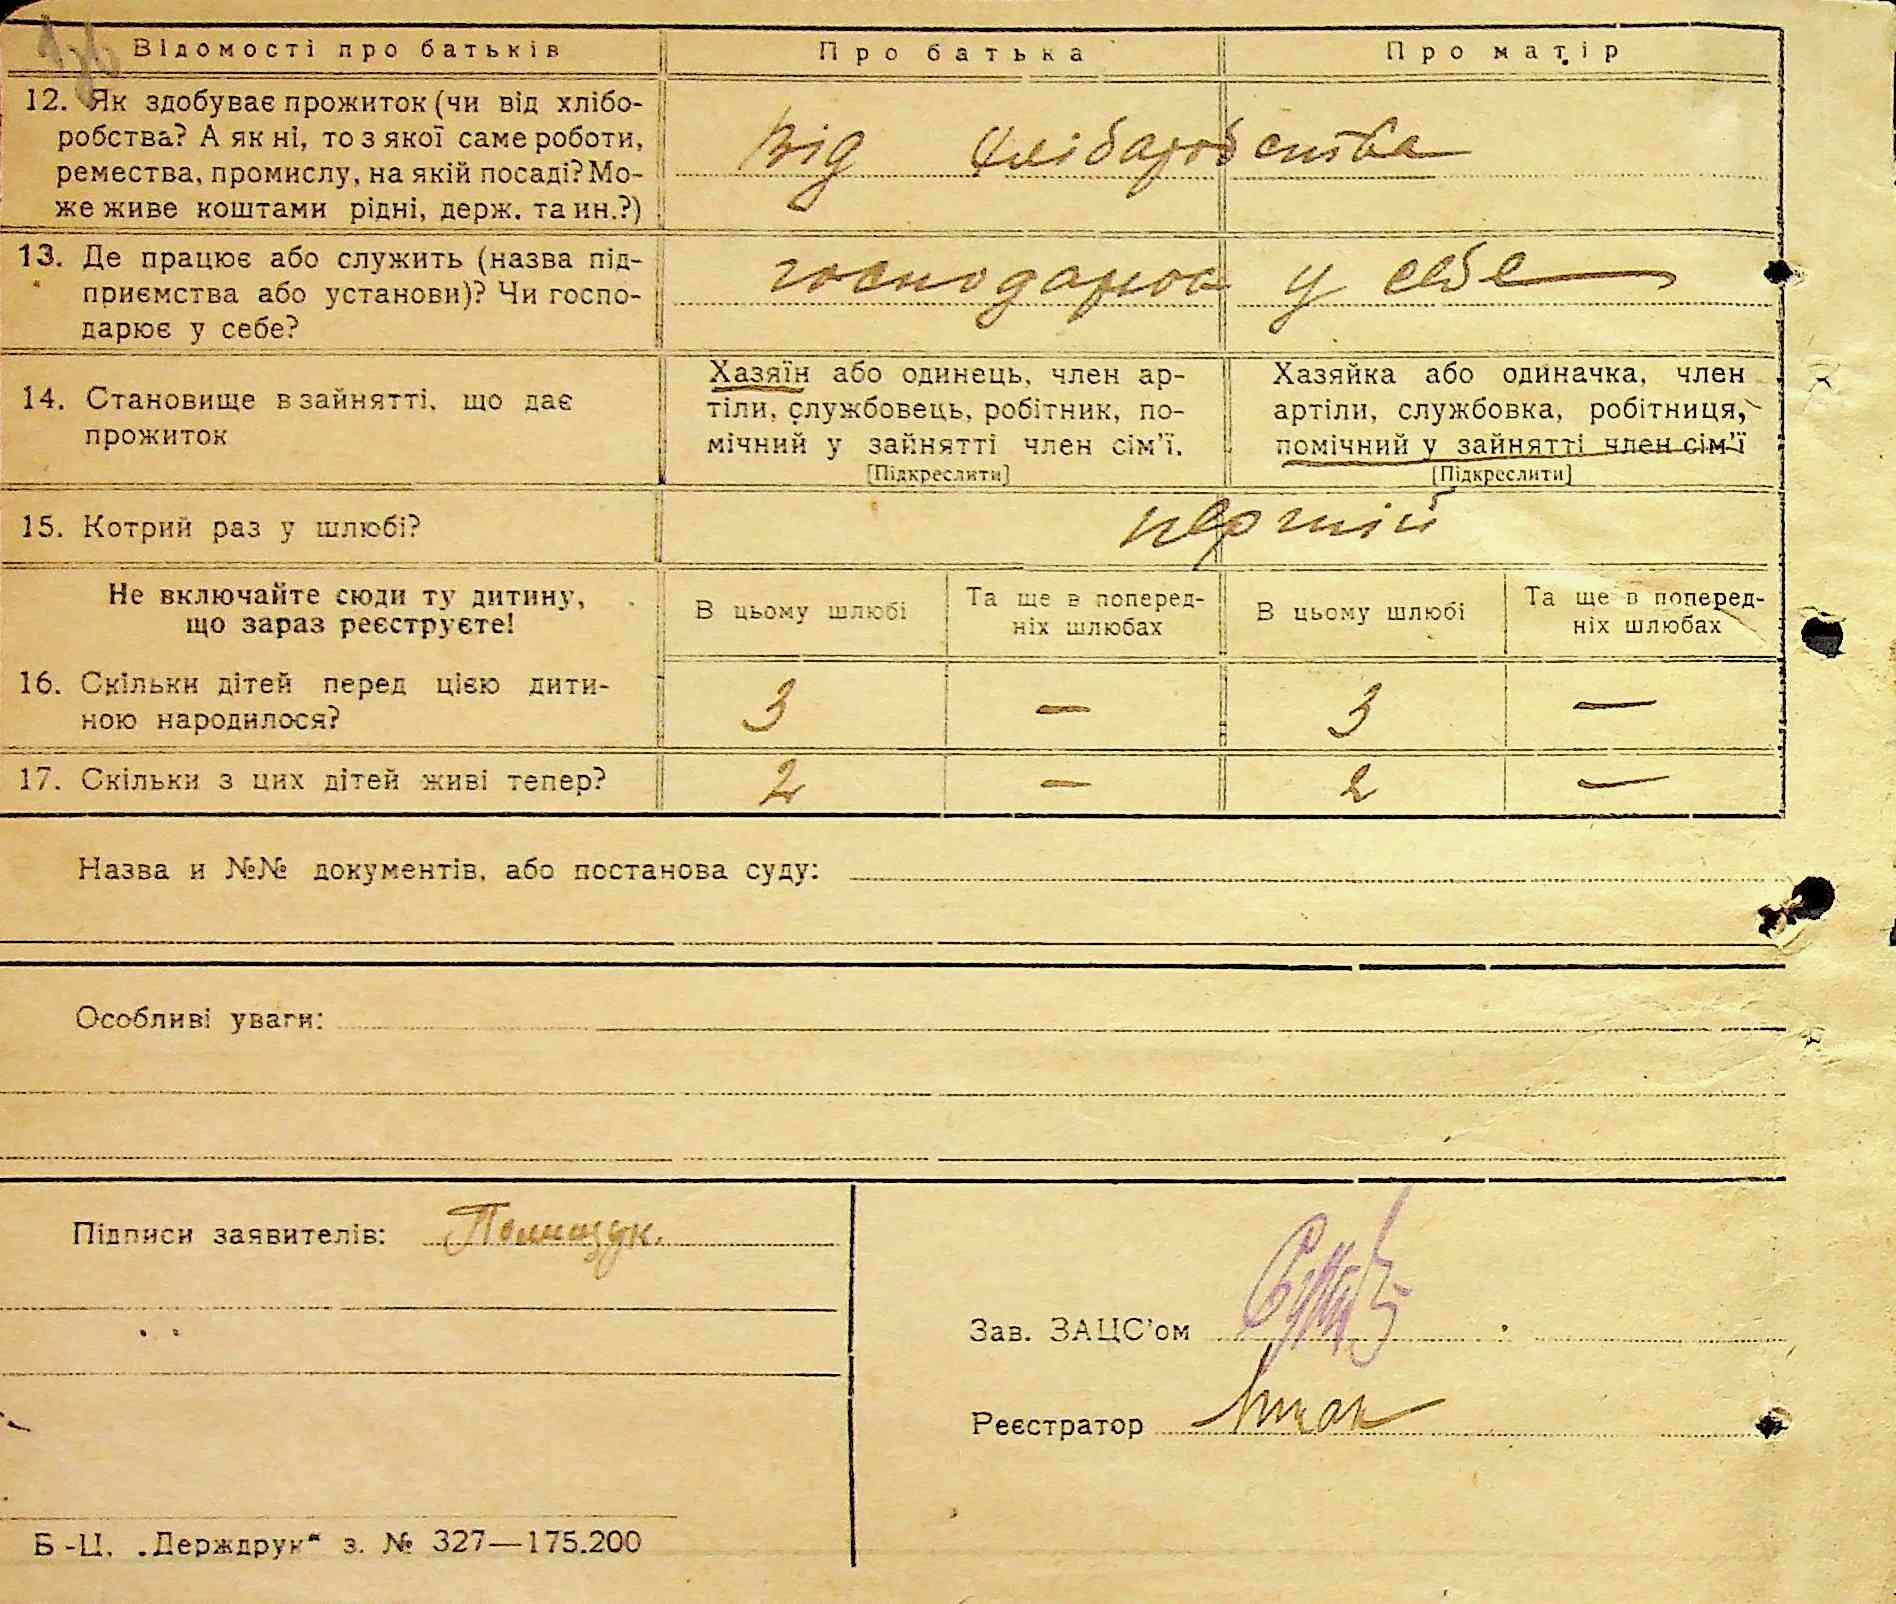 Відомості про батьків Про батька Про матір
12. Як здобуває прожиток (чи від хлібо-
робства? А як ні, то з якої саме роботи,
ремества, промислу, на якій посаді? Мо-
же живе коштами рідні, держ. та ин.?)
Від хлібаробства
13. Де працює або служить (назва під-
приємства або установи)? Чи госпо-
дарює у себе?
господарює у себе
14. Становище в зайнятті, що дає
прожиток
Хазяїн або одинець, член ар-
тіли, службовець, робітник, по-
мічний у зайнятті член сім'ї.
[Підкреслити]
Хазяйка або одиначка, член
артіли, службовка, робітниця,
помічний у зайнятті член сім'ї
[Підкреслити]
15. Котрий раз у шлюбі?
першій
Не включайте сюди ту дитину,
що зараз реєструєте!
В цьому шлюбі
Та ще в поперед-
ніх шлюбах
В цьому шлюбі
Та ще в поперед-
ніх шлюбах
16. Скільки дітей перед цією дити-
ною народилося?
3 — 3 —
17. Скільки з цих дітей живі тепер? 2 — 2 —
Назва и №№ документів, або постанова суду:
Особливі уваги:
Підписи заявителів: Полищук.
Зав. ЗАЦС'ом
Реєстратор
Б-Ц. „Держдрук“ з. № 327—175.200